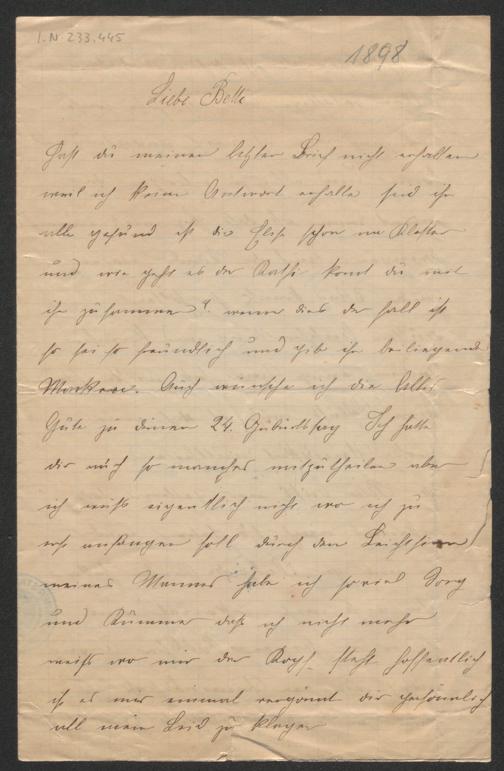 I.N 233.445
1898
Liebe Betti
Hast du meinen letzten Brief nicht erhalten
weil ich keine Antwort erhalte seid ihr
alle gesund ist die Else schon im Kloster
und wie geht es der Kathi komt du mit
ihr zusammen? wenn dies der fall ist
so sei so freundlich und gib ihr beiliegende
Marken. Auch wünsche ich dir Alles
Gute zu deinen 24. Gebürtstag Ich hatte
dir auch so manches mitzutheilen aber
ich weiß eigentlich nicht wo ich zu
erst anfangen soll durch den Leichtsinn
meines Mannes habe ich soviel Sorg
und Kümmer daß ich nicht mehr
weiß wo mir der Kopf steht hoffentlich
ist es mir einmal vergönnt dir persönlich
all mein Leid zu klagen